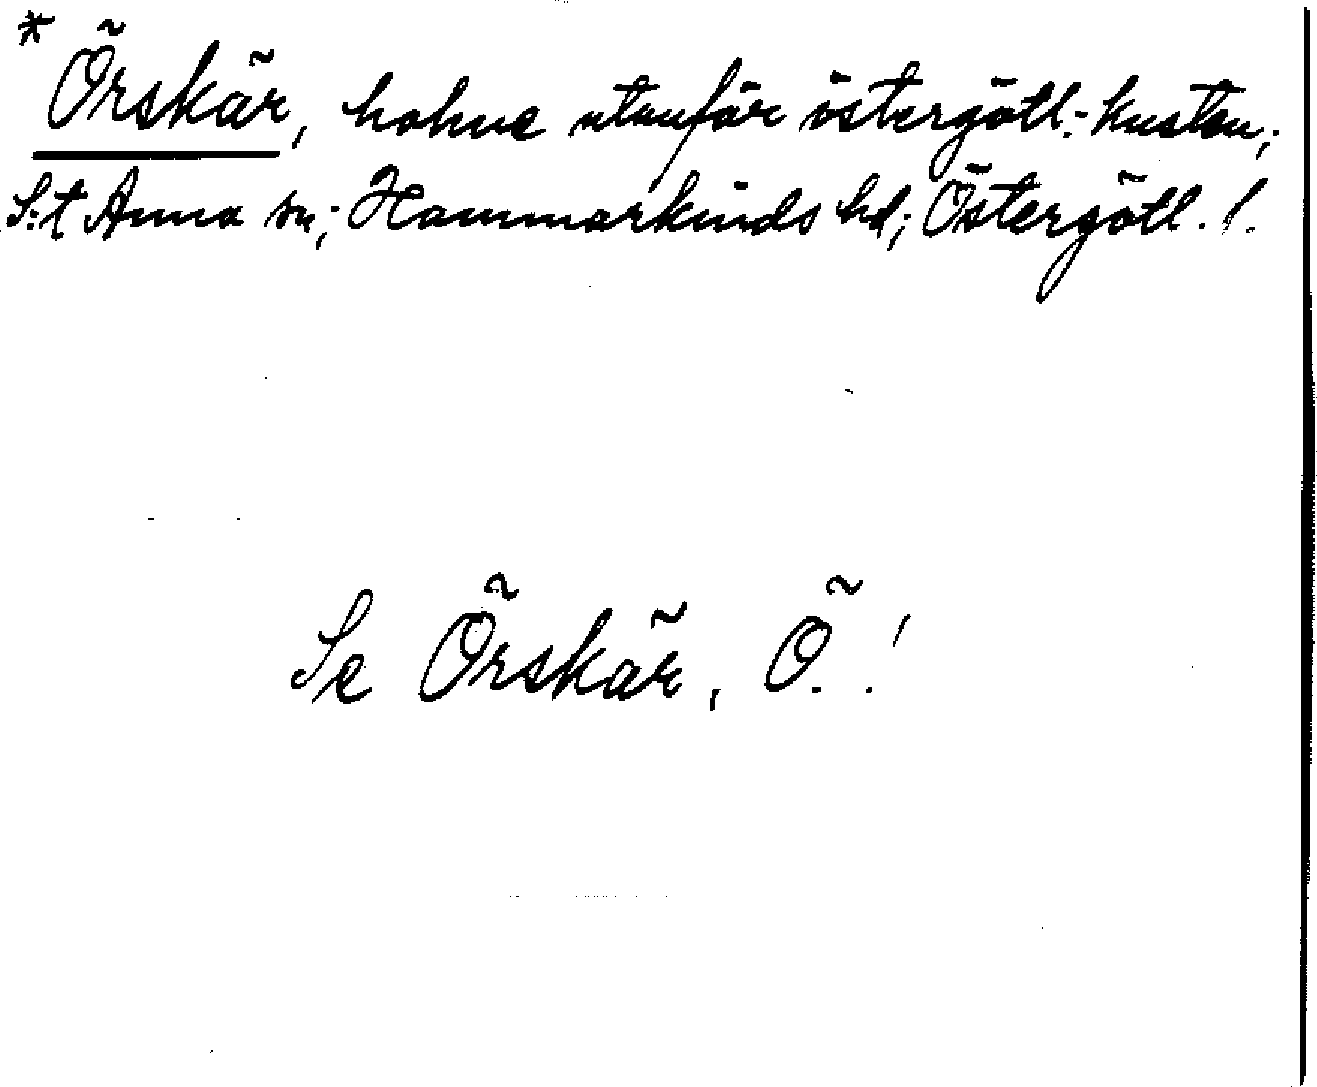 * Örskär, holme utanför östergötl.-kusten;
S:t Anna sn; Hammarkinds hd; Östergötl. l.
Se Örskär, Ö.!